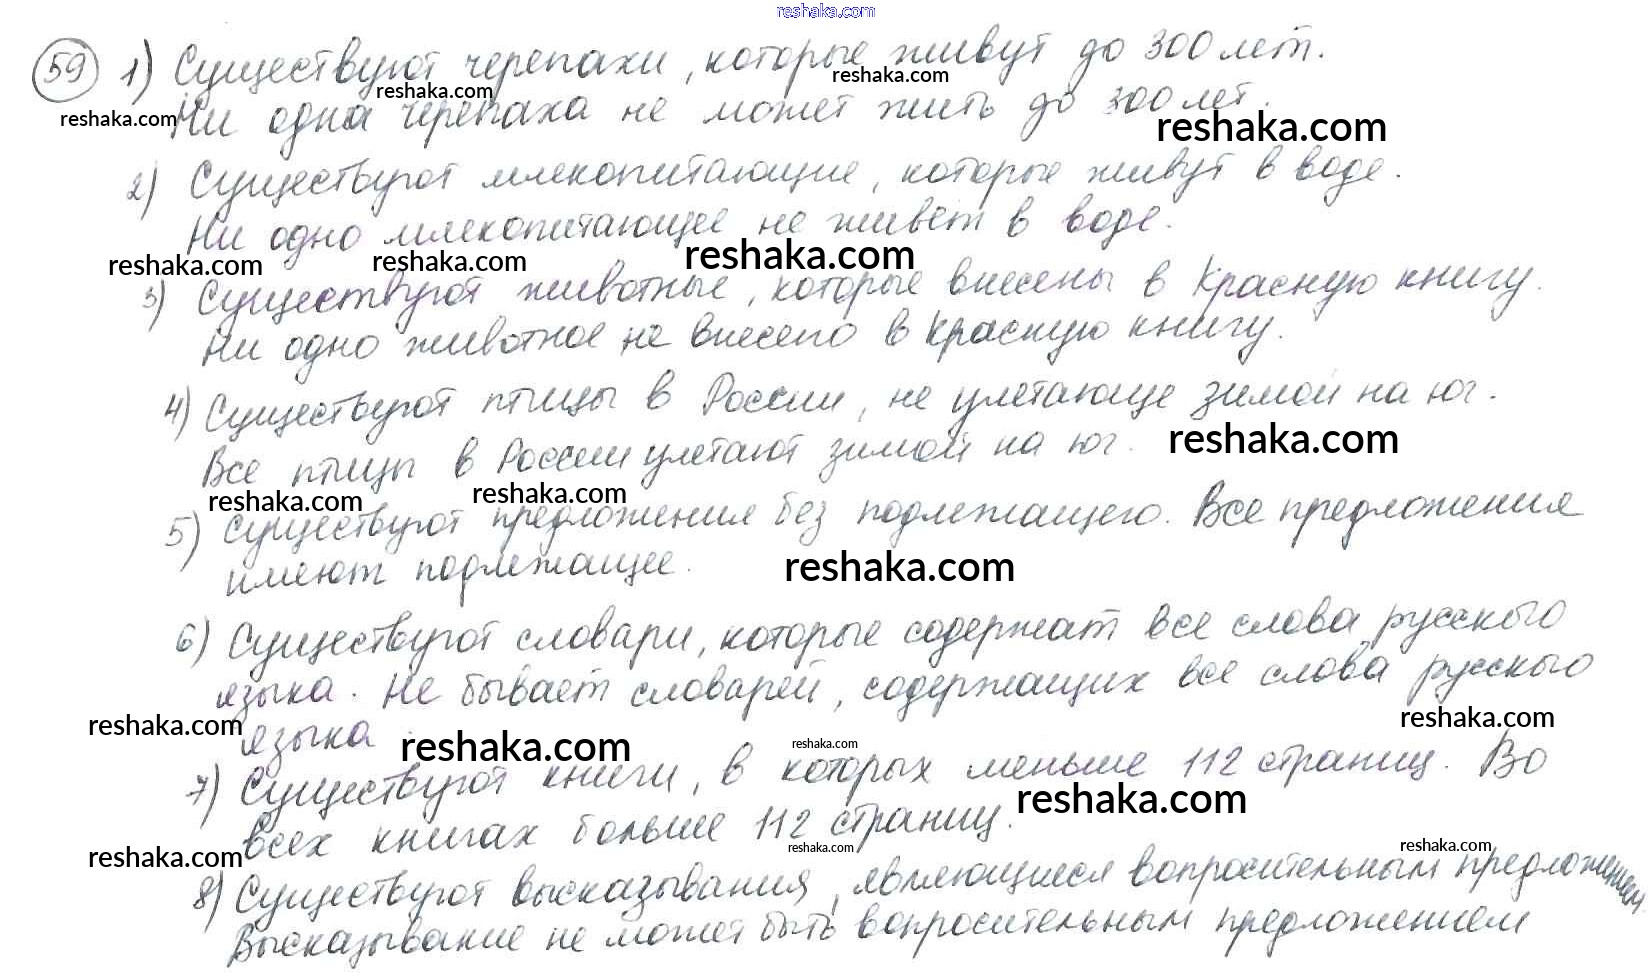 reshaka.com
59 1) Существуют черепахи, которые живут до 300 лет.
reshaka.com reshaka.com
reshaka.com Ни одна черепаха не может жить до 300 лет. reshaka.com
2) Существуют млекопитающие, которые живут в воде.
Ни одно млекопитающее не живёт в воде.
reshaka.com reshaka.com reshaka.com
3) Существуют животные, которые внесены в Красную книгу.
Ни одно животное не внесено в Красную книгу.
4) Существуют птицы в России, не улетающие зимой на юг.
Все птицы в России улетают зимой на юг. reshaka.com
reshaka.com reshaka.com
5) Существуют предложения без подлежащего. Все предложения
имеют подлежащее. reshaka.com
6) Существуют словари, которые содержат все слова русского
языка. Не бывает словарей, содержащих все слова русского
reshaka.com языка. reshaka.com reshaka.com reshaka.com
7) Существуют книги, в которых меньше 112 страниц. Во
всех книгах больше 112 страниц. reshaka.com
reshaka.com reshaka.com reshaka.com
8) Существуют высказывания, являющиеся вопросительным предложением
Высказывание не может быть вопросительным предложением